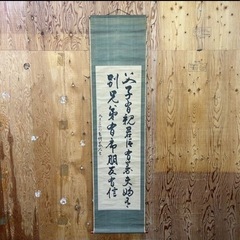 父子有親君臣有義夫婦有
別兄弟有序朋友有信